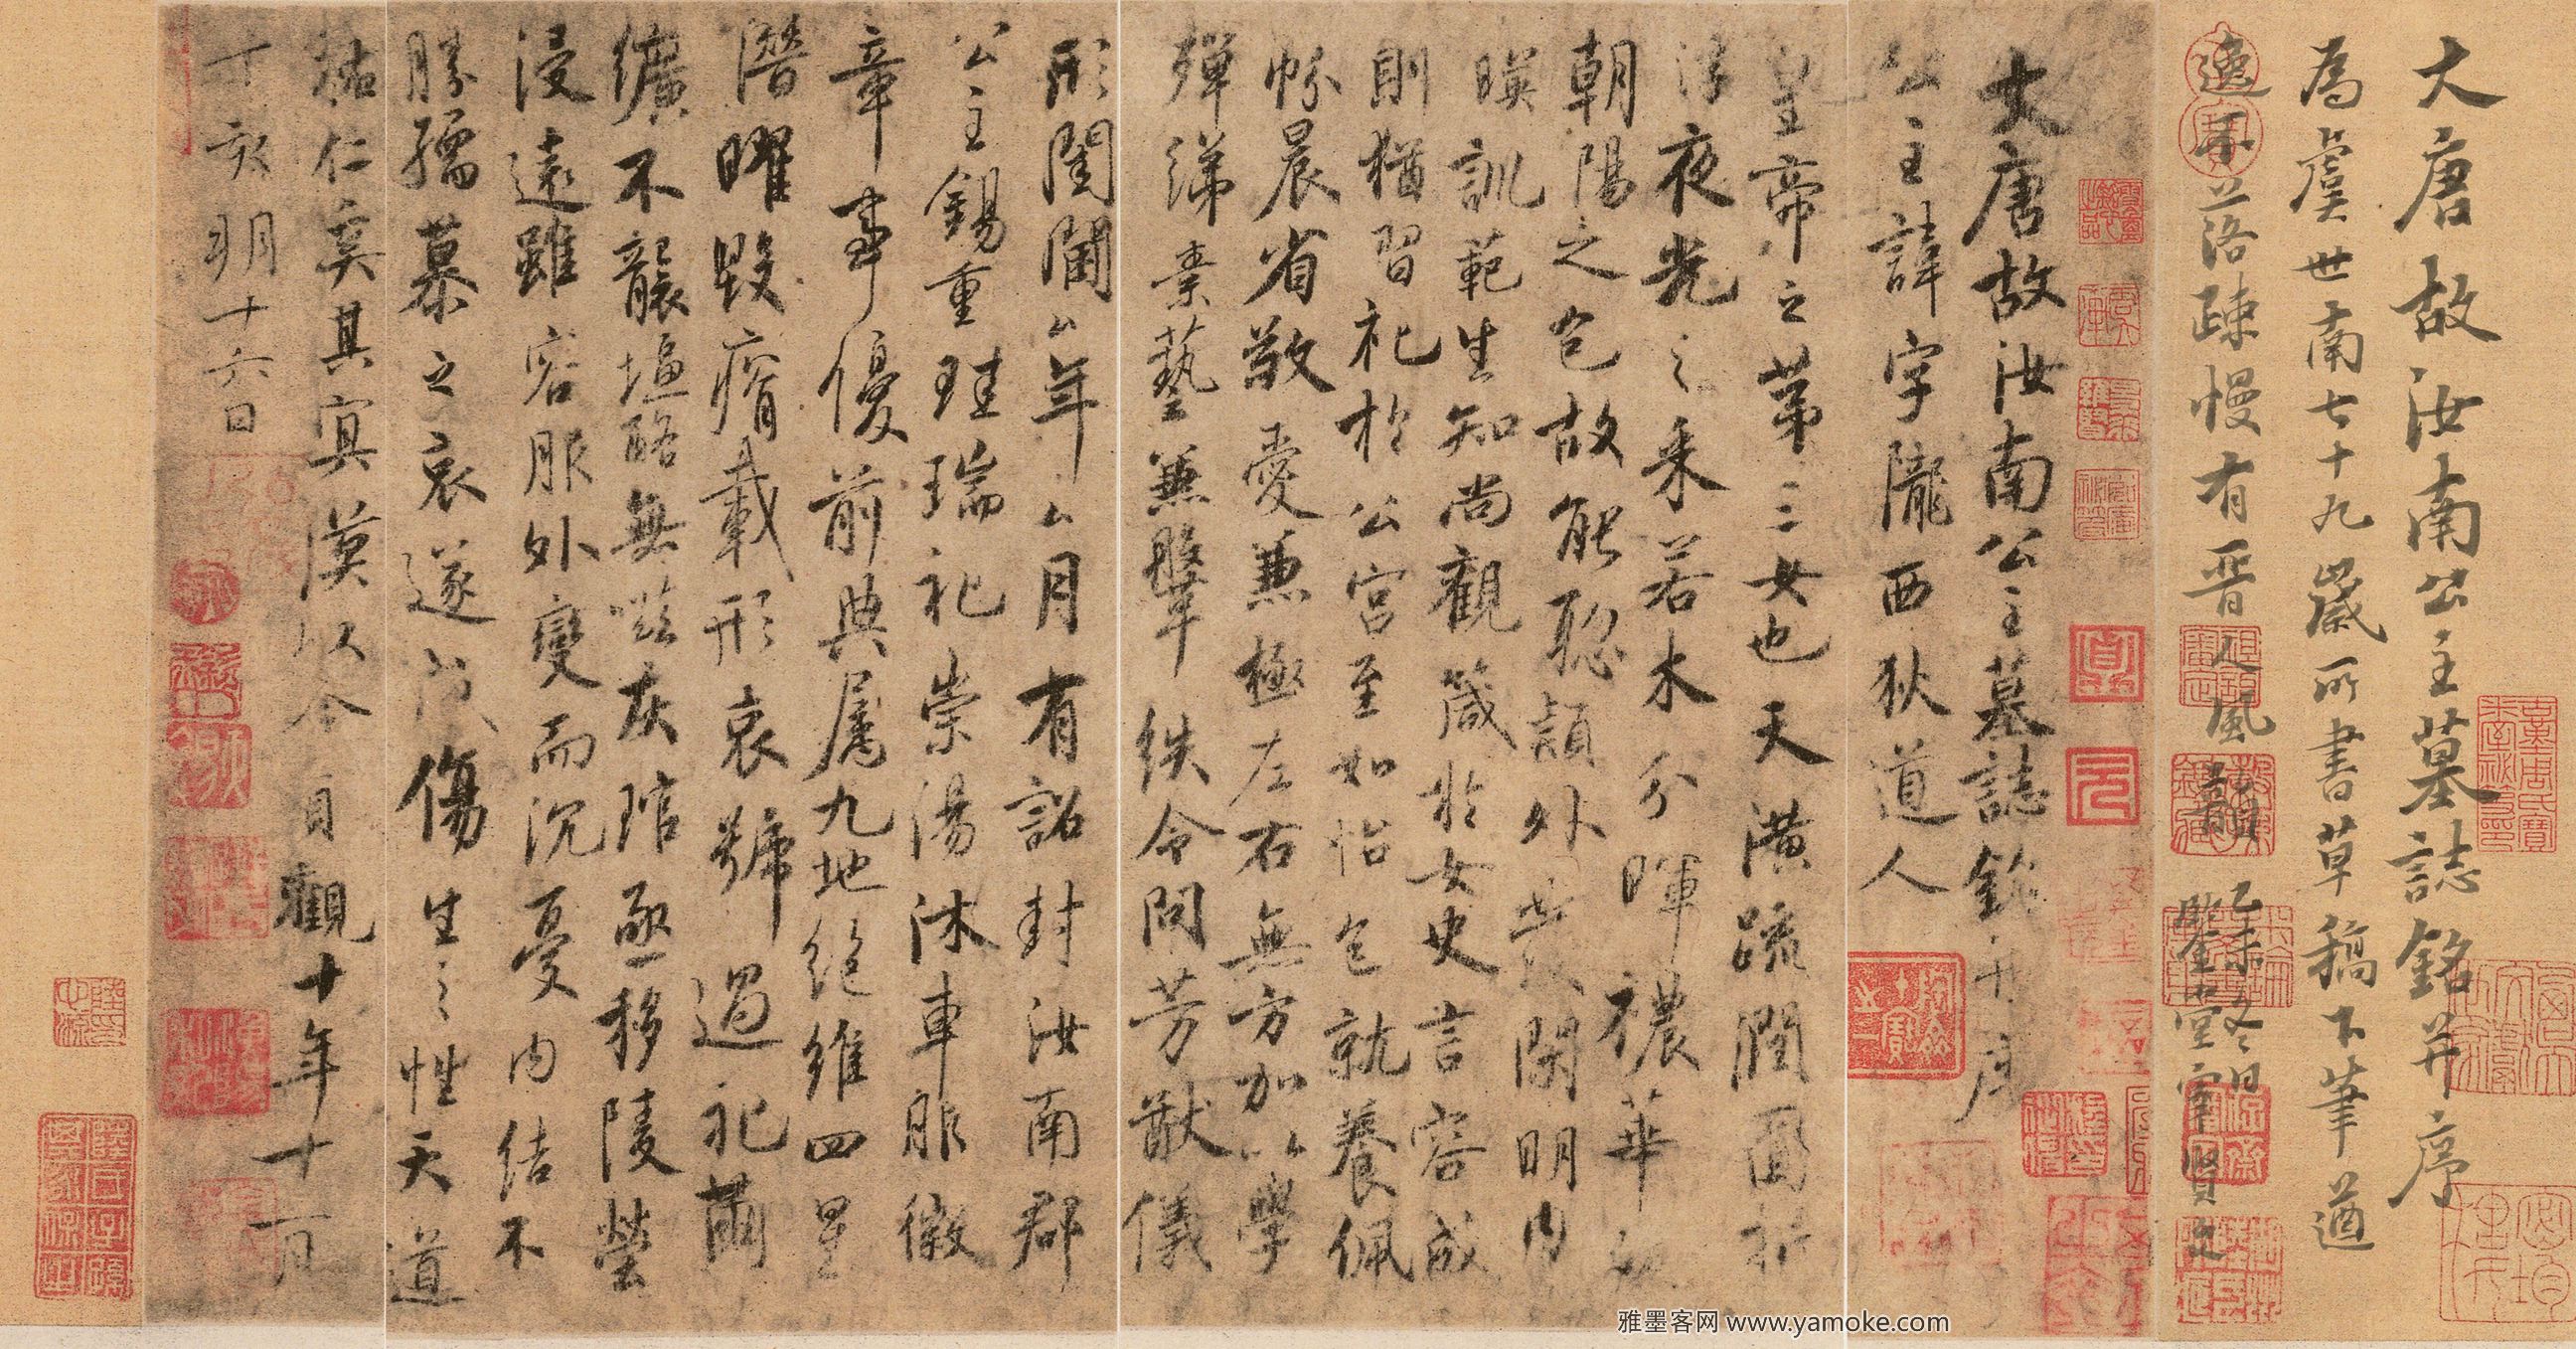 大唐故汝南公主墓誌銘并序
為虞世南七十九歲所書草稿下筆遒
逸不落疎慢有晉人風
乙未冬日
大唐故汝南公主墓誌銘并序
公主諱字隴西狄道人
皇帝之第三女也天潢疏潤圓折
浮夜光之采若木分暉穠華
朝陽之色故能聰穎外發閑明內
暎訓範生知尚觀箴於女史言容成
則猶習禮於公宮至如怡色就養佩
帉晨省敬愛兼極左右無方加以學
殫綈素藝兼鞶紩令問芳猷儀
形閨閫公年公月有詔封汝南郡
公主錫重珪瑞禮崇湯沐車服徽
章事優前典屬九地絕維四星
潛曜毀瘠載形哀號過禮繭
纊不襲塩酪無嗞灰琯亟移陵塋
浸遠雖容服外變而沉憂內結不
勝孺慕之哀遂成傷生之性天道
祐仁奚其冥漠以今貞觀十年十一月
丁亥朔十六日
雅墨客网 www.yamoke.com